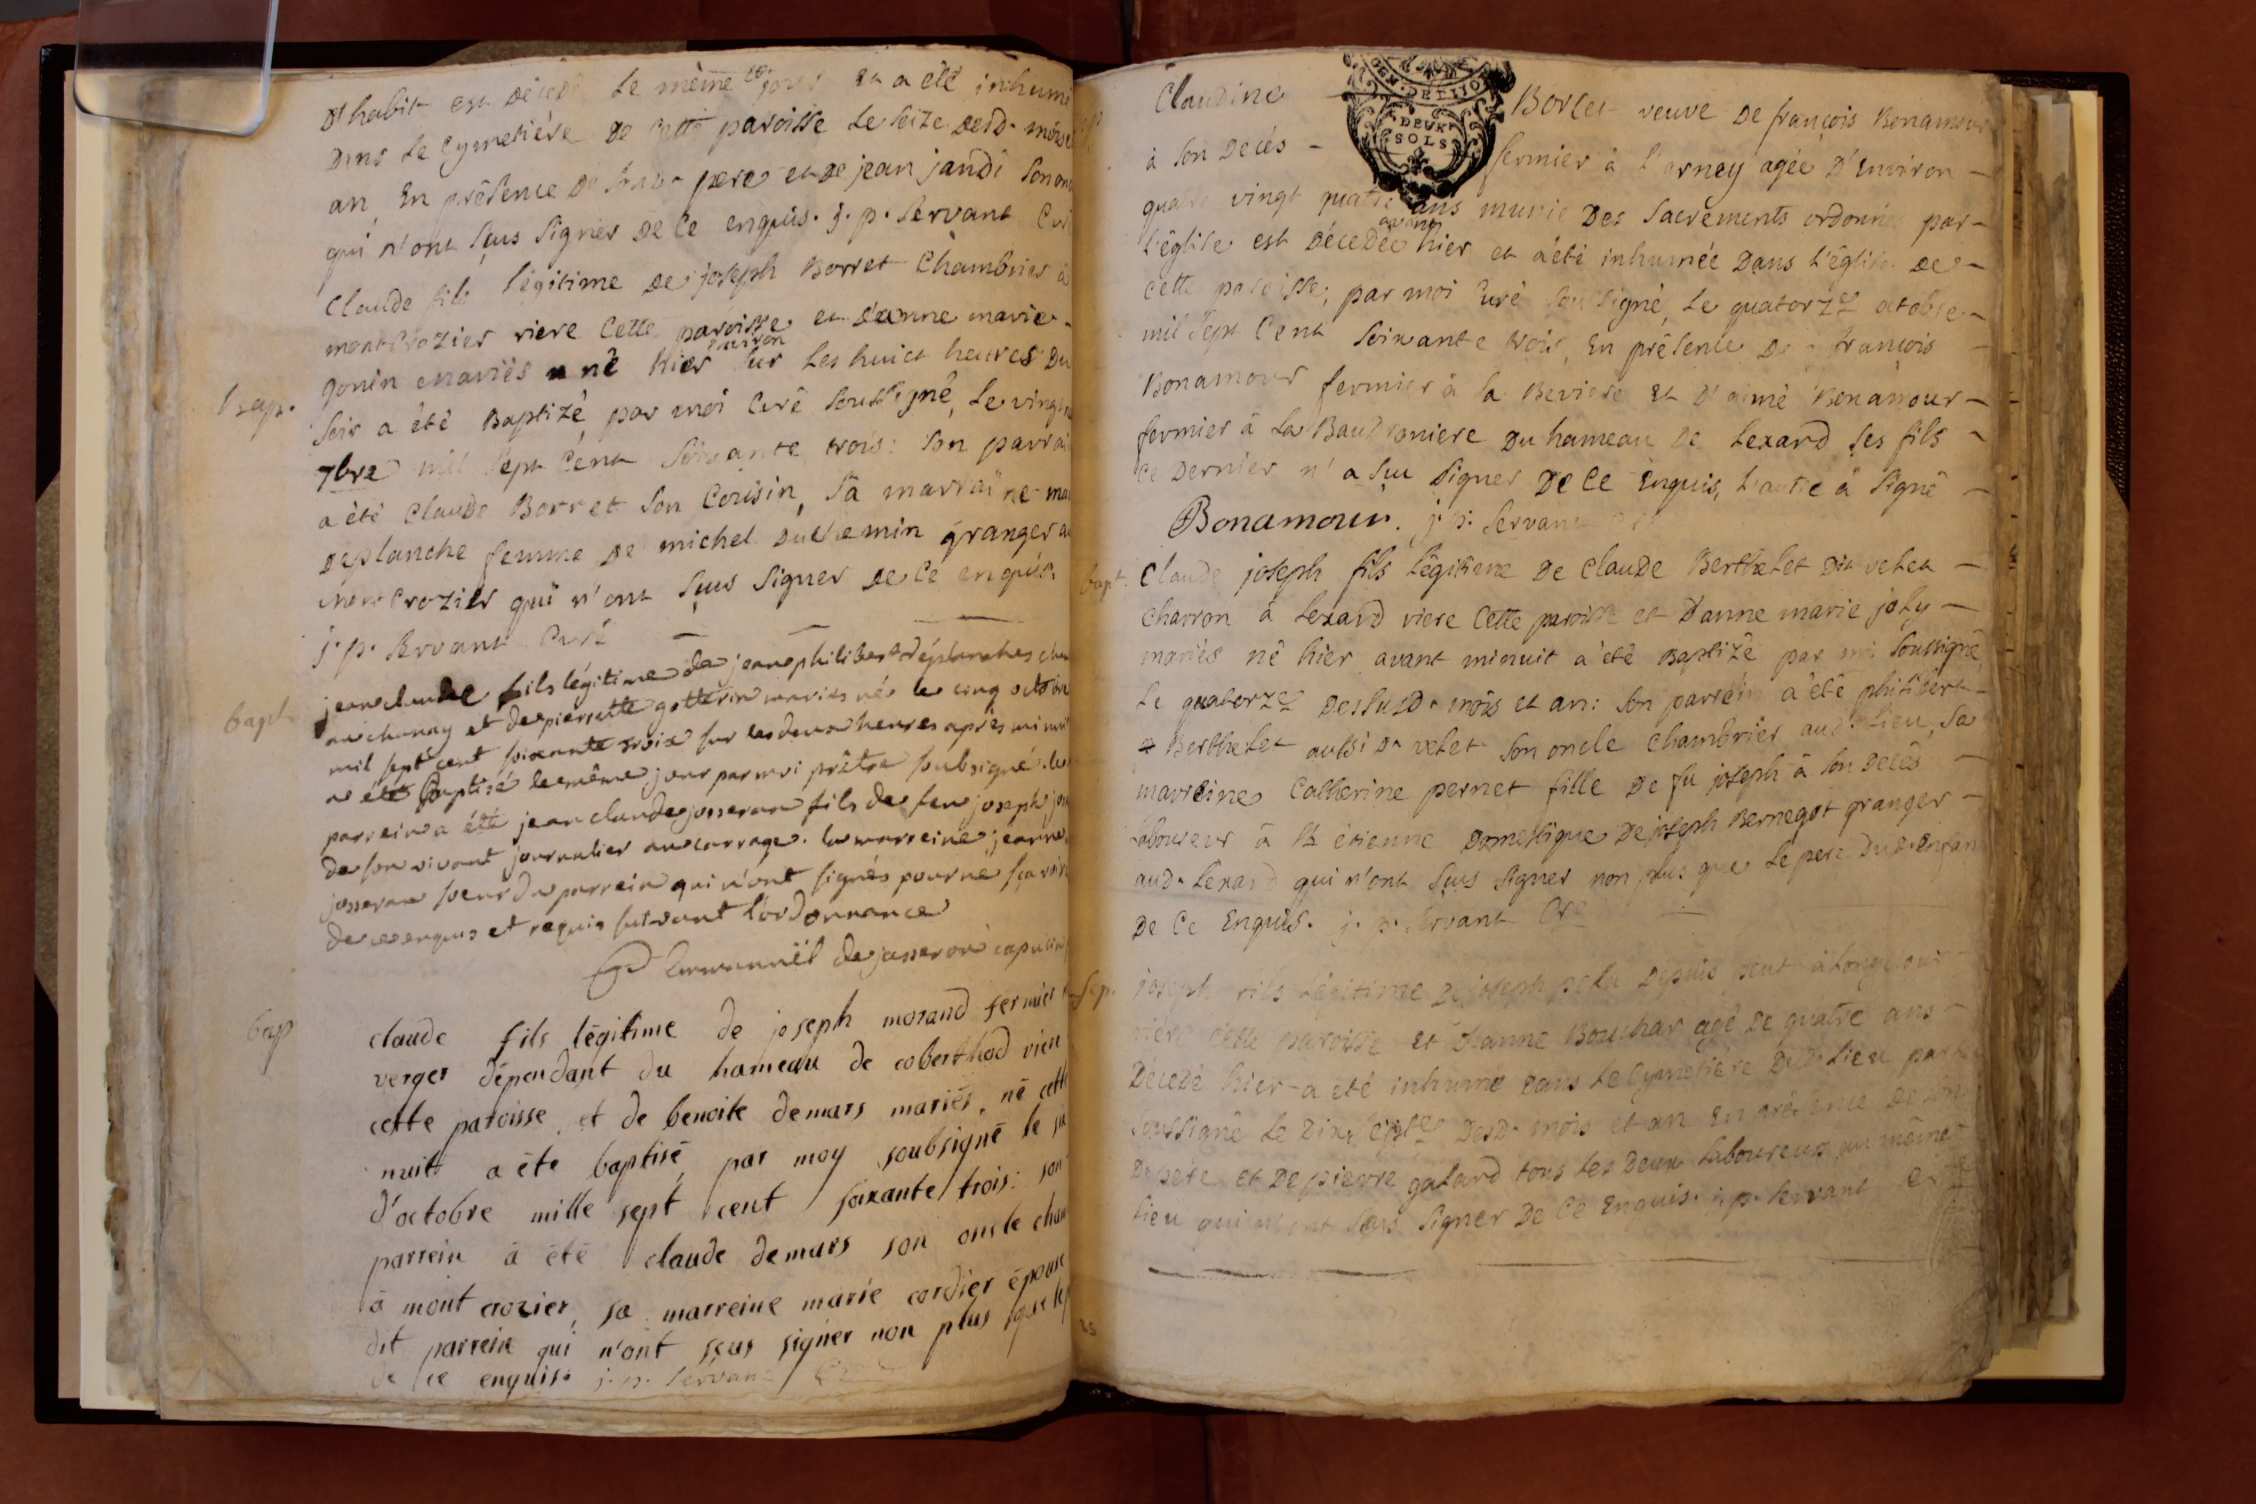 D'habit est Décedé le même jour et a été inhumé
Dans Le Cymetiére De Cette paroisse Le seize Desd. mois
an, En présence De pere et De jean jandi son
qui n'ont sçus signer De Ce enquis. j. p. Servant
Claude fils légitime De joseph Borret Chambrier à
montCrozier riere Cette paroisse et D'anne marie -
gonin mariés né hier environ sur Les huict heures Du
bap.
soir a été Baptizé, par moi Curé soussigné, Le vingt
7bre mil sept Cent soixante trois: son parrain
a été Claude Borret son Cousin, sa marraine
Deplanche femme De michel Duchemin granger
mont Crozier qui n'ont sçus signer De Ce enquis
j. p. Servant Curé
bapt
jean claude fils légitime de jean philibert déplanches
au chanay et de pierrette gotterin mariés né le cinq octobre
mil sept cent soixante trois sur les deux heures après minuit
a été baptisé le même jour par moi prêtre soubsigné. le
parrein a été jean claude josseran fils de feu joseph
de son vivant journalier au carrage. la marreine jeanne
josseran soeur du parrein qui n'ont signés pour ne sçavoir
de ce enquis et requis suivant l'ordonnance
Emmanuël de jasseron capucin
bap
claude fils légitime de joseph morand fermier
verger dépendant du hameau de coberthod riere
cette paroisse et de benoite demars mariés, né cette
nuit a été baptisé par moy soubsigné le
d'octobre mille sept cent soixante trois: son
parrein à été claude demars son oncle
à mont crozier, sa marreine marie cordier épouse
dit parrein qui n'ont sçus signer non plus que le
de ce enquis. j. p. Servant
Claudine Borcet veuve De françois Bonamour
à son Decés - fermier à l'arney agée D'Environ -
quatre vingt quatre ans munie Des Sacrements ordonnés par -
L'église est Décedée avant hier et a été inhumée Dans l'église De -
Cette paroisse, par moi Curé soussigné, Le quatorze octobre -
mil sept Cent soixante trois, En présence De françois -
Bonamour fermier à la Beviere Et D'aimé Bonamour -
fermier à La Baudroniere Du hameau De Lexard ses fils -
Ce Dernier n'a sçu signer De Ce Enquis, L'autre à signé -
Bonamour. j. p. Servant
bapt.
Claude joseph fils Légitime De Claude Berthelet Dit velet -
Charron à Lexard riere Cette paroisse et D'anne marie joly -
mariés né hier avant minuit a été Baptizé par moi Soussigné
Le quatorze Dessusd. mois et an: son parrein a été philibert -
Berthelet aussi Dt velet son oncle Chambrier aud. Lieu, sa
marreine Catherine pernet fille De fu joseph à son Decés -
Laboureur à St étienne Domestique De joseph Bernegot granger -
aud. Lexard qui n'ont sçus signer non plus que Le pere Dud. Enfant
De Ce Enquis. j. p. Servant Cré
Sep.
joseph fils Légitime De joseph pelu Depuis peut à
riere Cette paroisse et D'anne Bouchar agé De quatre ans -
Décedé hier a été inhumé Dans Le Cymetiére Dud. Lieu par
soussigné Le Dix sept Desd. mois et an En présence De son
D. pére et De pierre galard tous Les Deux Laboureurs au même
Lieu qui n'ont sçus signer De Ce Enquis. j. p. Servant
DEUX
SOLS